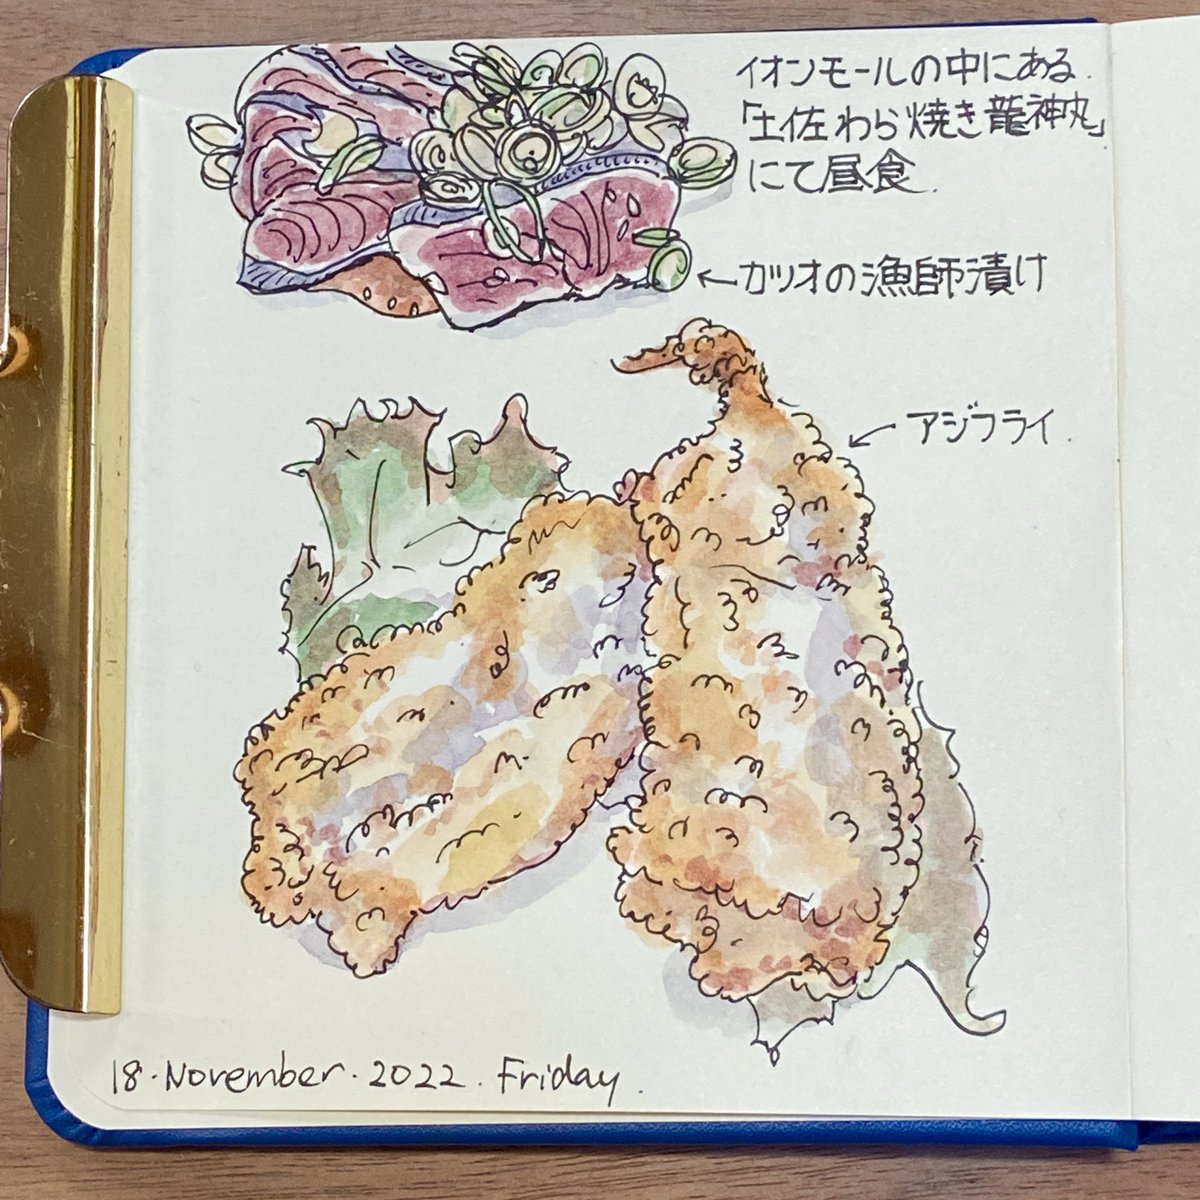 イオンモールの中にある.
「土佐わら焼き龍神丸」
にて昼食.
←カツオの漁師漬け
←アジフライ.
18.November.2022.Friday.